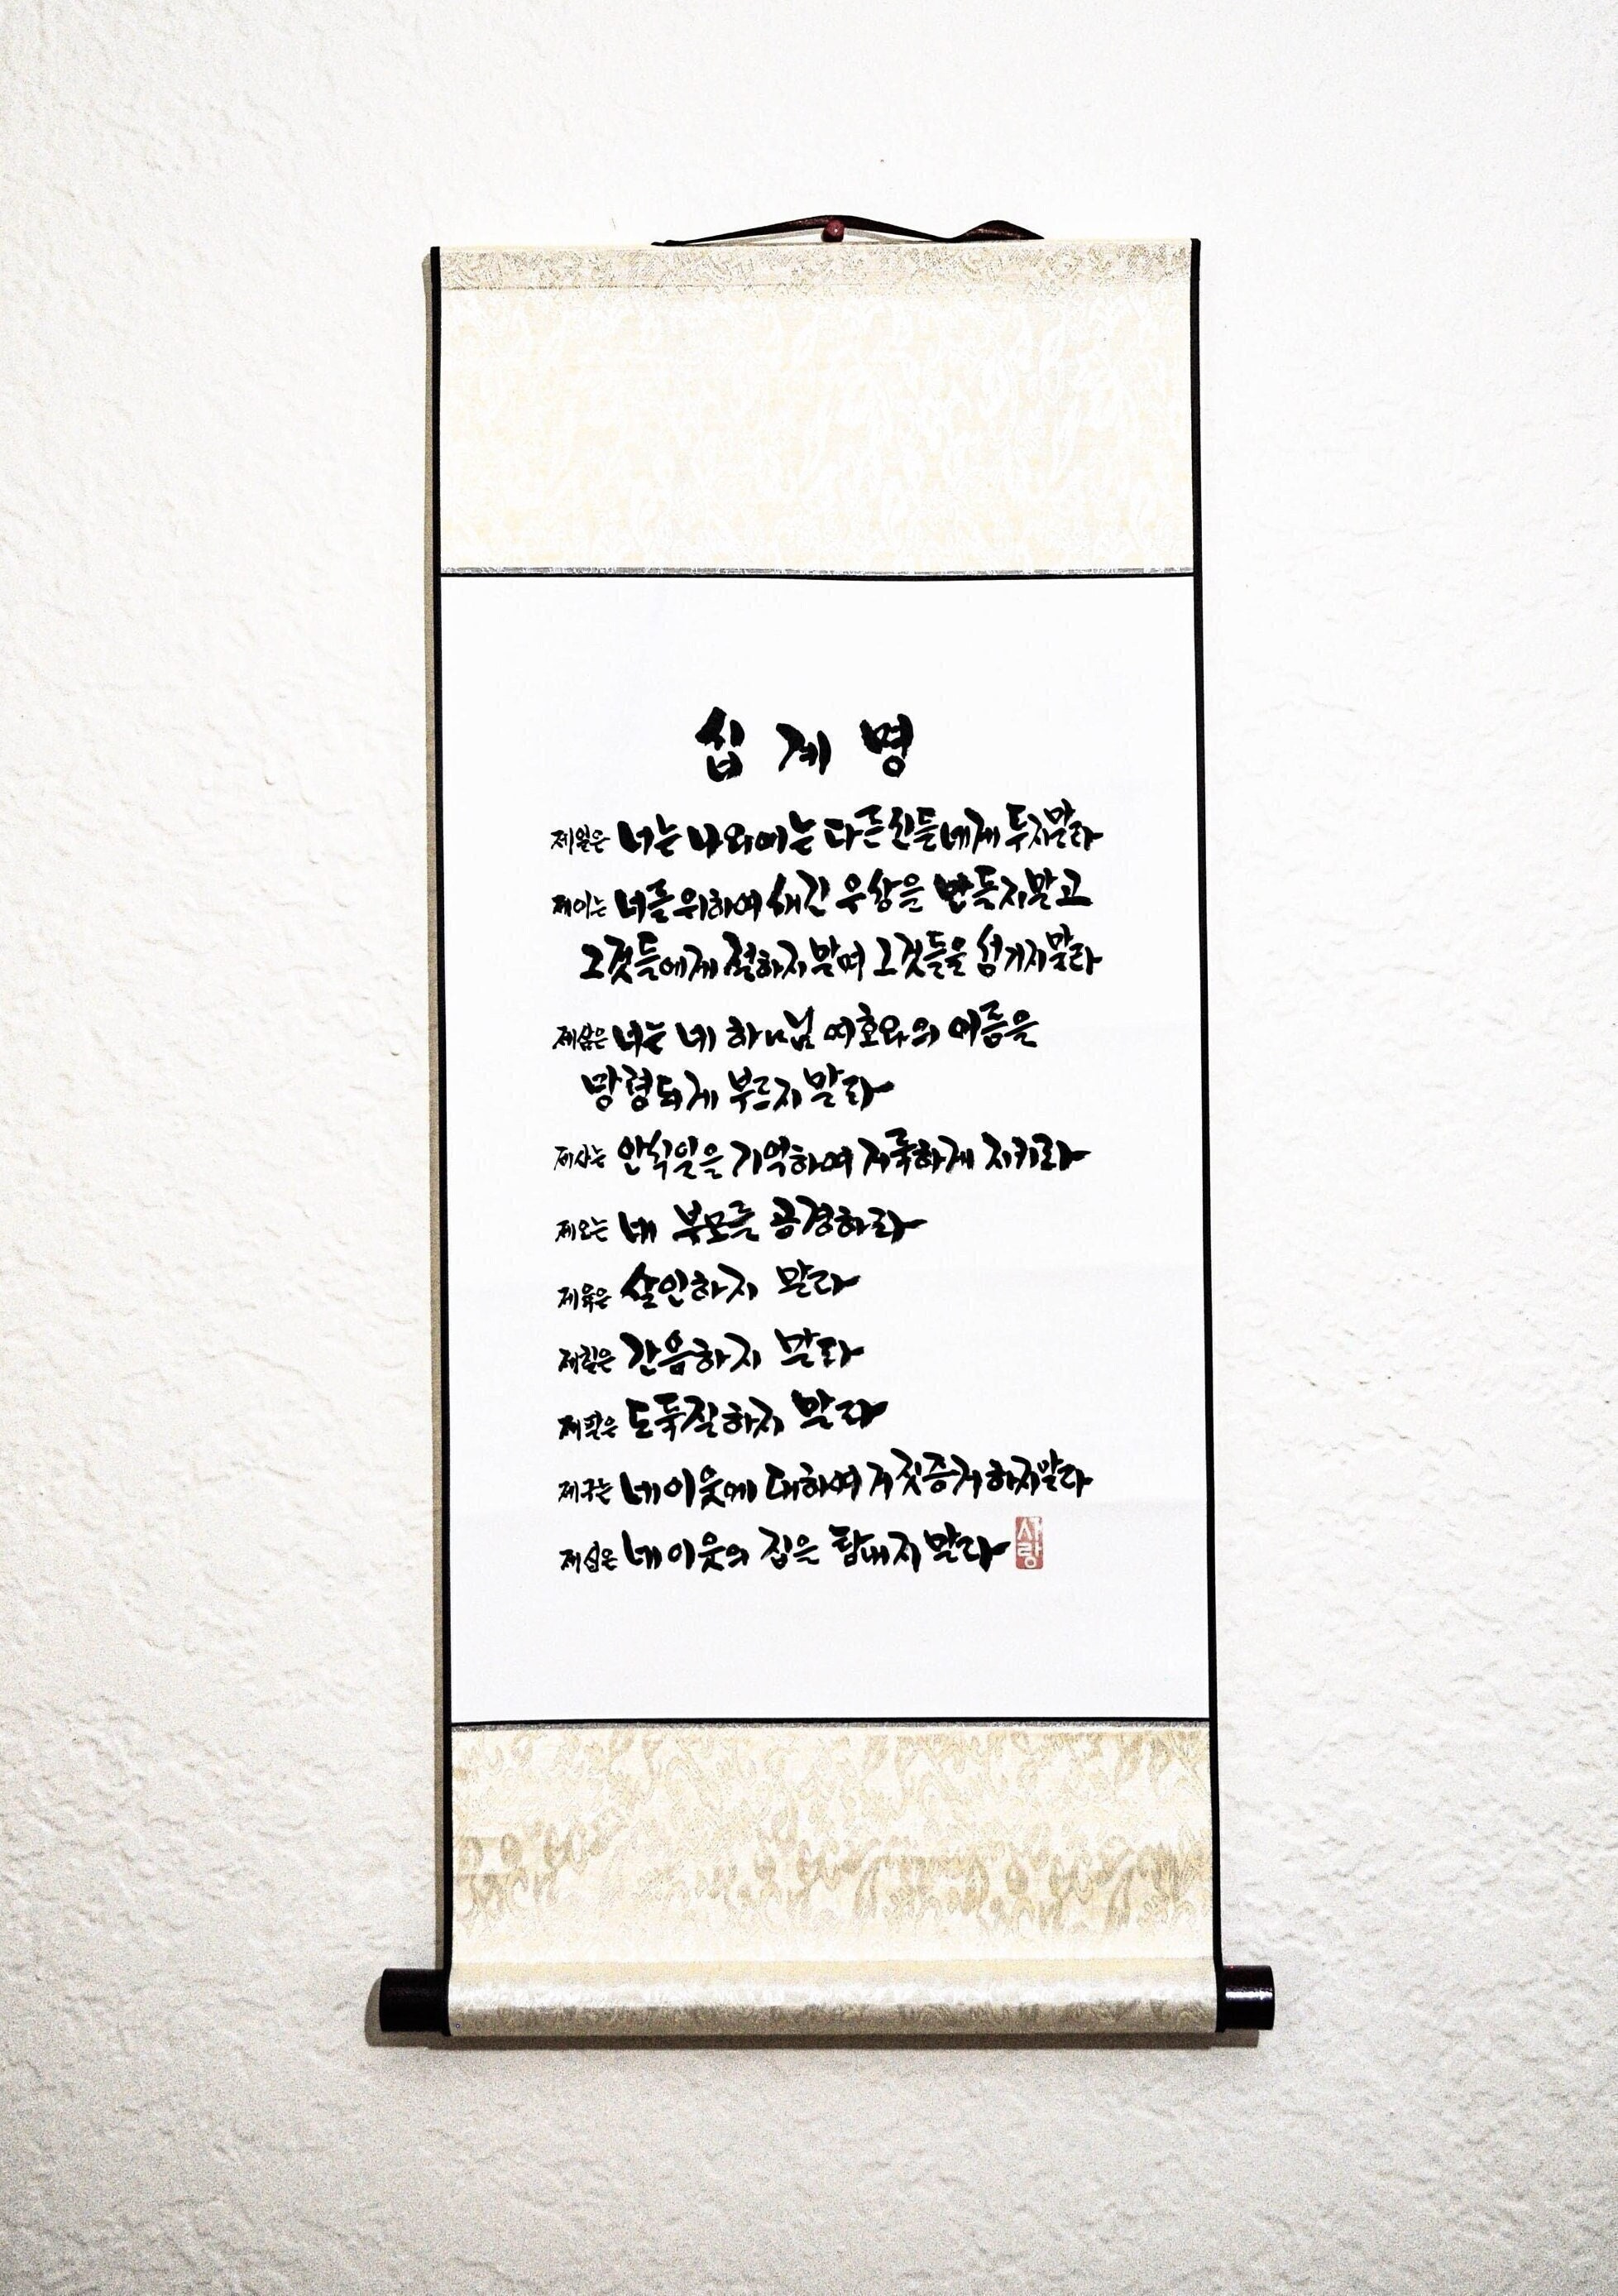 십계명
제일은 너는 나 외에는 다른 신들 네게 두지 말라
제이는 너를 위하여 새긴 우상을 만들지 말고
그것들에게 절하지 말며 그것들을 섬기지 말라
제삼은 너는 네 하나님 여호와의 이름을
망령되게 부르지 말라
제사는 안식일을 기억하여 거룩하게 지키라
제오는 네 부모를 공경하라
제육은 살인하지 말라
제칠은 간음하지 말라
제팔은 도둑질하지 말라
제구는 네 이웃에 대하여 거짓 증거하지 말라
제십은 네 이웃의 집을 탐내지 말라
사랑